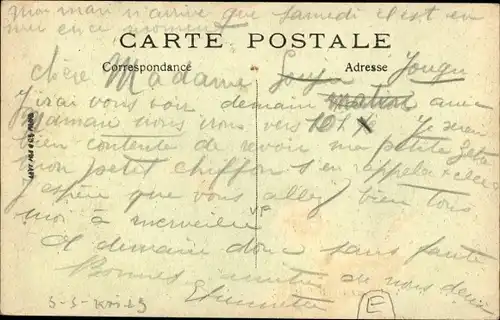 mon mari n'arrive que samedi il est en
mer en ce moment
CARTE POSTALE
Correspondance
Adresse
chère Madame
J'irai vous voir demain matin avec
maman nous irons vers 10h Je serai
bien contente de revoir ma petite
mon petit chiffon s'en rappela
J'espère que vous allez bien tous
moi à merveille
VP
A demain donc sans faute
Bonnes amitiés de nous deux
E